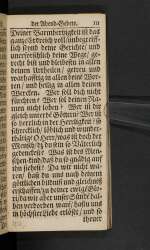 der Abend-Gebete. 111
Deiner Barmherzigkeit ist das
gantz Erdreich voll: unbegreif-
lich sind deine Gerichte, und
unerforschlich deine Wege: ge-
recht bist und bleibest in allen
deinen Urtheilen; getreu und
warhafftig in allen deine Wor-
ten; und heilig in allen deinen
Wercken. Wer soll dich nicht
fürchten? Wer sol deinen Na-
men nicht loben? Wer ist dir
gleich unter dē Göttern? Wer ist
so herrlich in der Heiligkeit? so
schrecklich, löblich und wunder-
thätig? O HErr, was ist doch der
Mensch, dz du sein so Väterlich
gedenckest. Was ist des Men-
schen-kind, daß du so gnädig auf
ihn siehest? Da wir nicht wa-
ren, hast du uns nach deinem
göttlichen bildniß und gleichniß
erschaffen, zu deiner ewig
da wir aber unsrer Sünde hal-
ben verdorben waren, hast uns
in höchster Liebe erlöset, und so
theuer